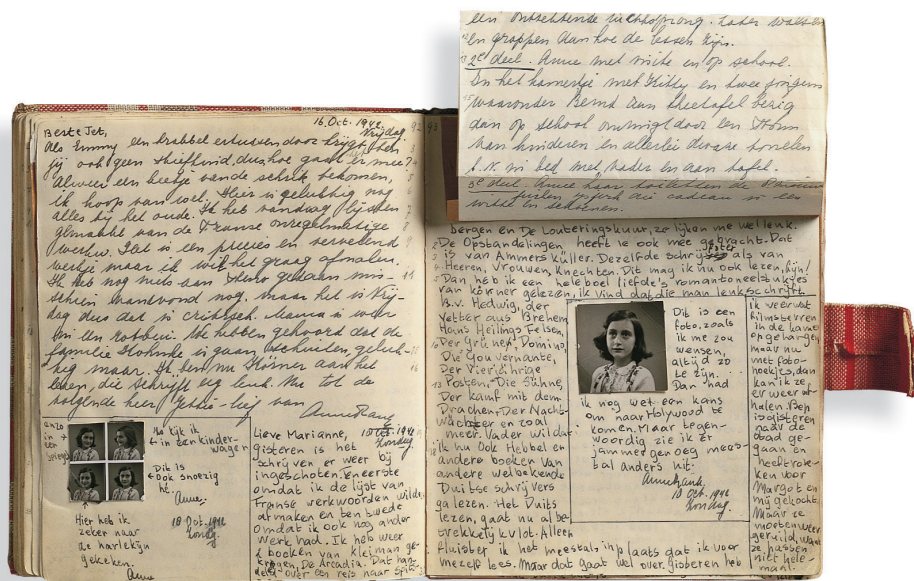 16. Oct. 1942
Vrijdag
Beste Jet,
Als Emmy een krabbel ertussen door krijgt, ben
jij ook geen stiefkind, dus hoe gaat er mee?
Alweer een beetje van de schrik bekomen,
ik hoop van wel. Hier is gelukkig nog
alles bij het oude. Ik heb vandaag lijsten
gemaakt van de Franse onregelmatige
werkw. Het is een precies en vervelend
werkje maar ik wil het graag afmaken.
Ik heb nog niets aan steno gedaan mis-
schien vanavond nog, maar het is Vrij-
dag dus dat is critisch. Mama is weer
in een rotbui. We hebben gehoord dat de
familie is gaan geluk-
kig maar. Ik ben nu Körner aan het
lezen, die schrijft erg leuk. Nu tot de
volgende keer Jetje-lief van
Anne Frank
enzo
in
een
spiegel
Zo kijk ik
in een kinder-
wagen
Dit is
ook snoezig
hè.
Anne.
Hier heb ik
zeker naar
de harlekijn
gekeken.
Anne
18 Oct. 1942
Zondag.
Lieve Marianne,
Zondag
gisteren is het
schrijven er weer bij
ingeschoten. Eneerste
omdat ik de lijst van
Franse werkwoorden wilde
afmaken en ten twede
omdat ik ook nog ander
werk had. Ik heb weer
2 boeken van Kleiman ge-
kregen, De Arcadia. Dat han-
deld over een reis naar Spitz-
een ontzettende luchtsprong. Later
en grappen dan hoe de lessen zijn.
2e deel. Anne met visite en op school.
In het kamertje met Kitty en twee jongens
waaronder Bernd aan theetafel bezig
dan op school omringd door een stroom
van kinderen en allerlei dwaze
b.v. in bed met vader en aan tafel.
3e deel. Anne haar toiletten de
cadeau is een
en schoenen.
bergen en De Louteringskuur, ze lijken me wel leuk.
De Opstandelingen heeft ie ook mee gebracht. Dat
is van Ammers küller. Dezelfde schrijfster als van
Heeren, Vrouwen, Knechten. Dit mag ik nu ook lezen, fijn!
Dan heb ik een heleboel liefde's romantoneelstukjes
van körner gelezen, ik vind dat die man leuk schrijft.
B.v. Hedwig, der
Vetter aus Brehem
Hans Heilings Felsen,
Der Grüne Domino,
Die Gouvernante,
Der Vierjährige
Posten, Die Sühne,
Der kampf mit dem
Drachen, Der Nacht-
wächter en zoal
meer. Vader wil dat
ik nu ook Hebbel en
andere boeken van
andere welbekende
Duitse schrijvers
ga lezen. Het Duits
lezen, gaat nu al be-
trekkelijk vlot. Alleen
fluister ik het meestal in plaats dat ik voor
mezelf lees. Maar dat gaat wel over. Gisteren heb
Dit is een
foto, zoals
ik me zou
wensen,
altijd zo
te zijn.
Dan had
ik nog wel een kans
om naar Holywood te
komen. Maar tegen-
woordig zie ik er
jammer genoeg mees-
tal anders uit.
Anne Frank.
10 Oct. 1942
Zondag.
ik weer wat
filmsterren
in de kamer
opgehangen,
maar nu
met foto-
hoekjes, dan
kan ik ze
er weer af-
halen. Bep
is gisteren
naar de
stad ge-
gaan en
heeft rok-
ken voor
Margot en
mij gekocht.
Maar ze
moeten weer
geruild, want
ze passen
niet hele-
maal.